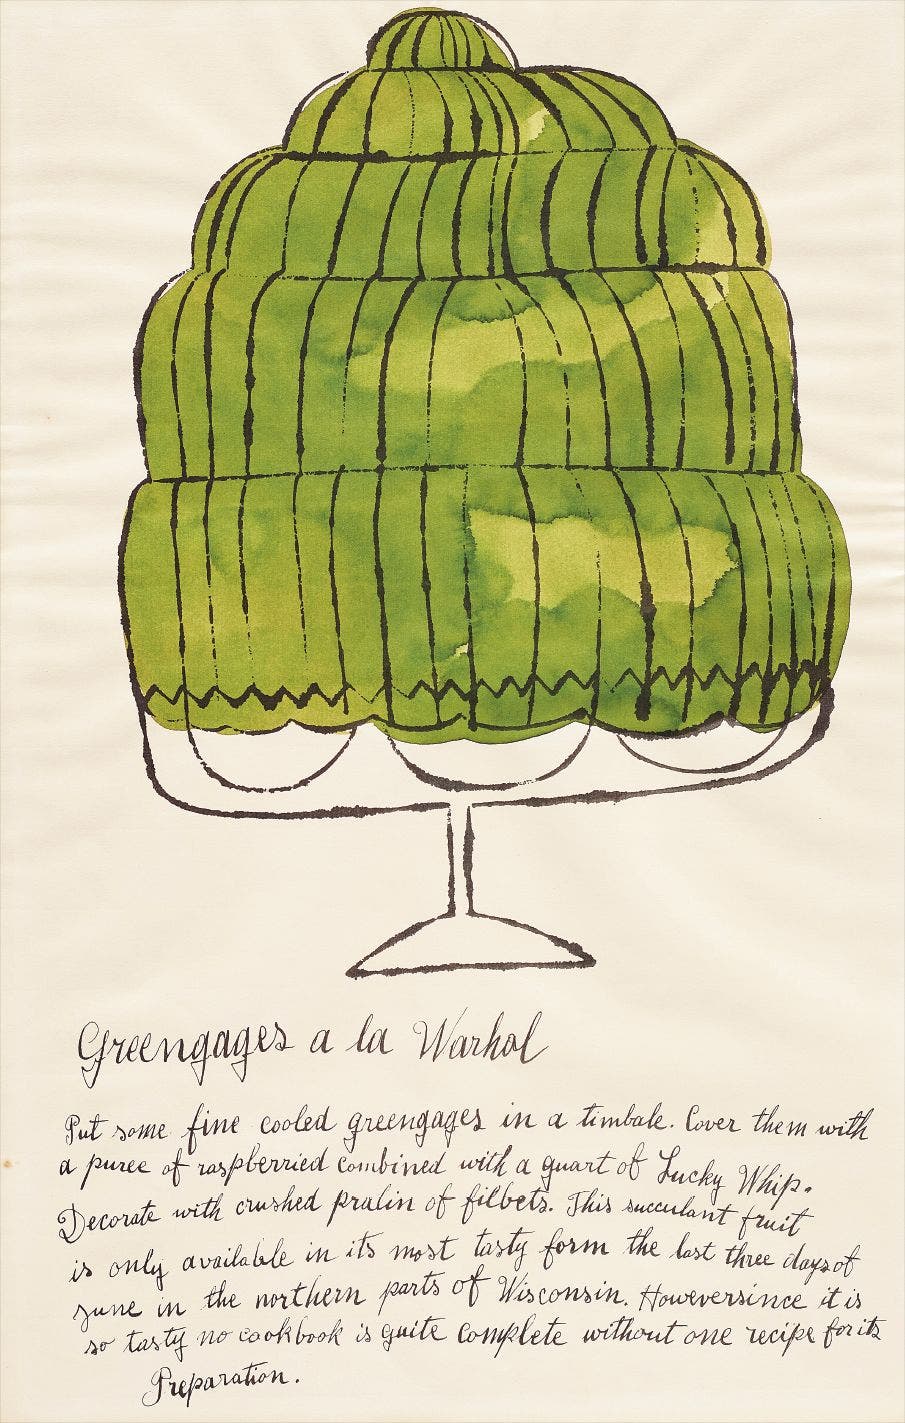 Greengages a la Warhol
Put some fine cooled greengages in a timbale. Cover them with
a puree of raspberried combined with a quart of Lucky Whip.
Decorate with crushed pralin of filbets. This succulant fruit
is only available in its most tasty form the last three days of
June in the northern parts of Wisconsin. Howeversince it is
so tasty no cookbook is quite complete without one recipe for its
Preparation.